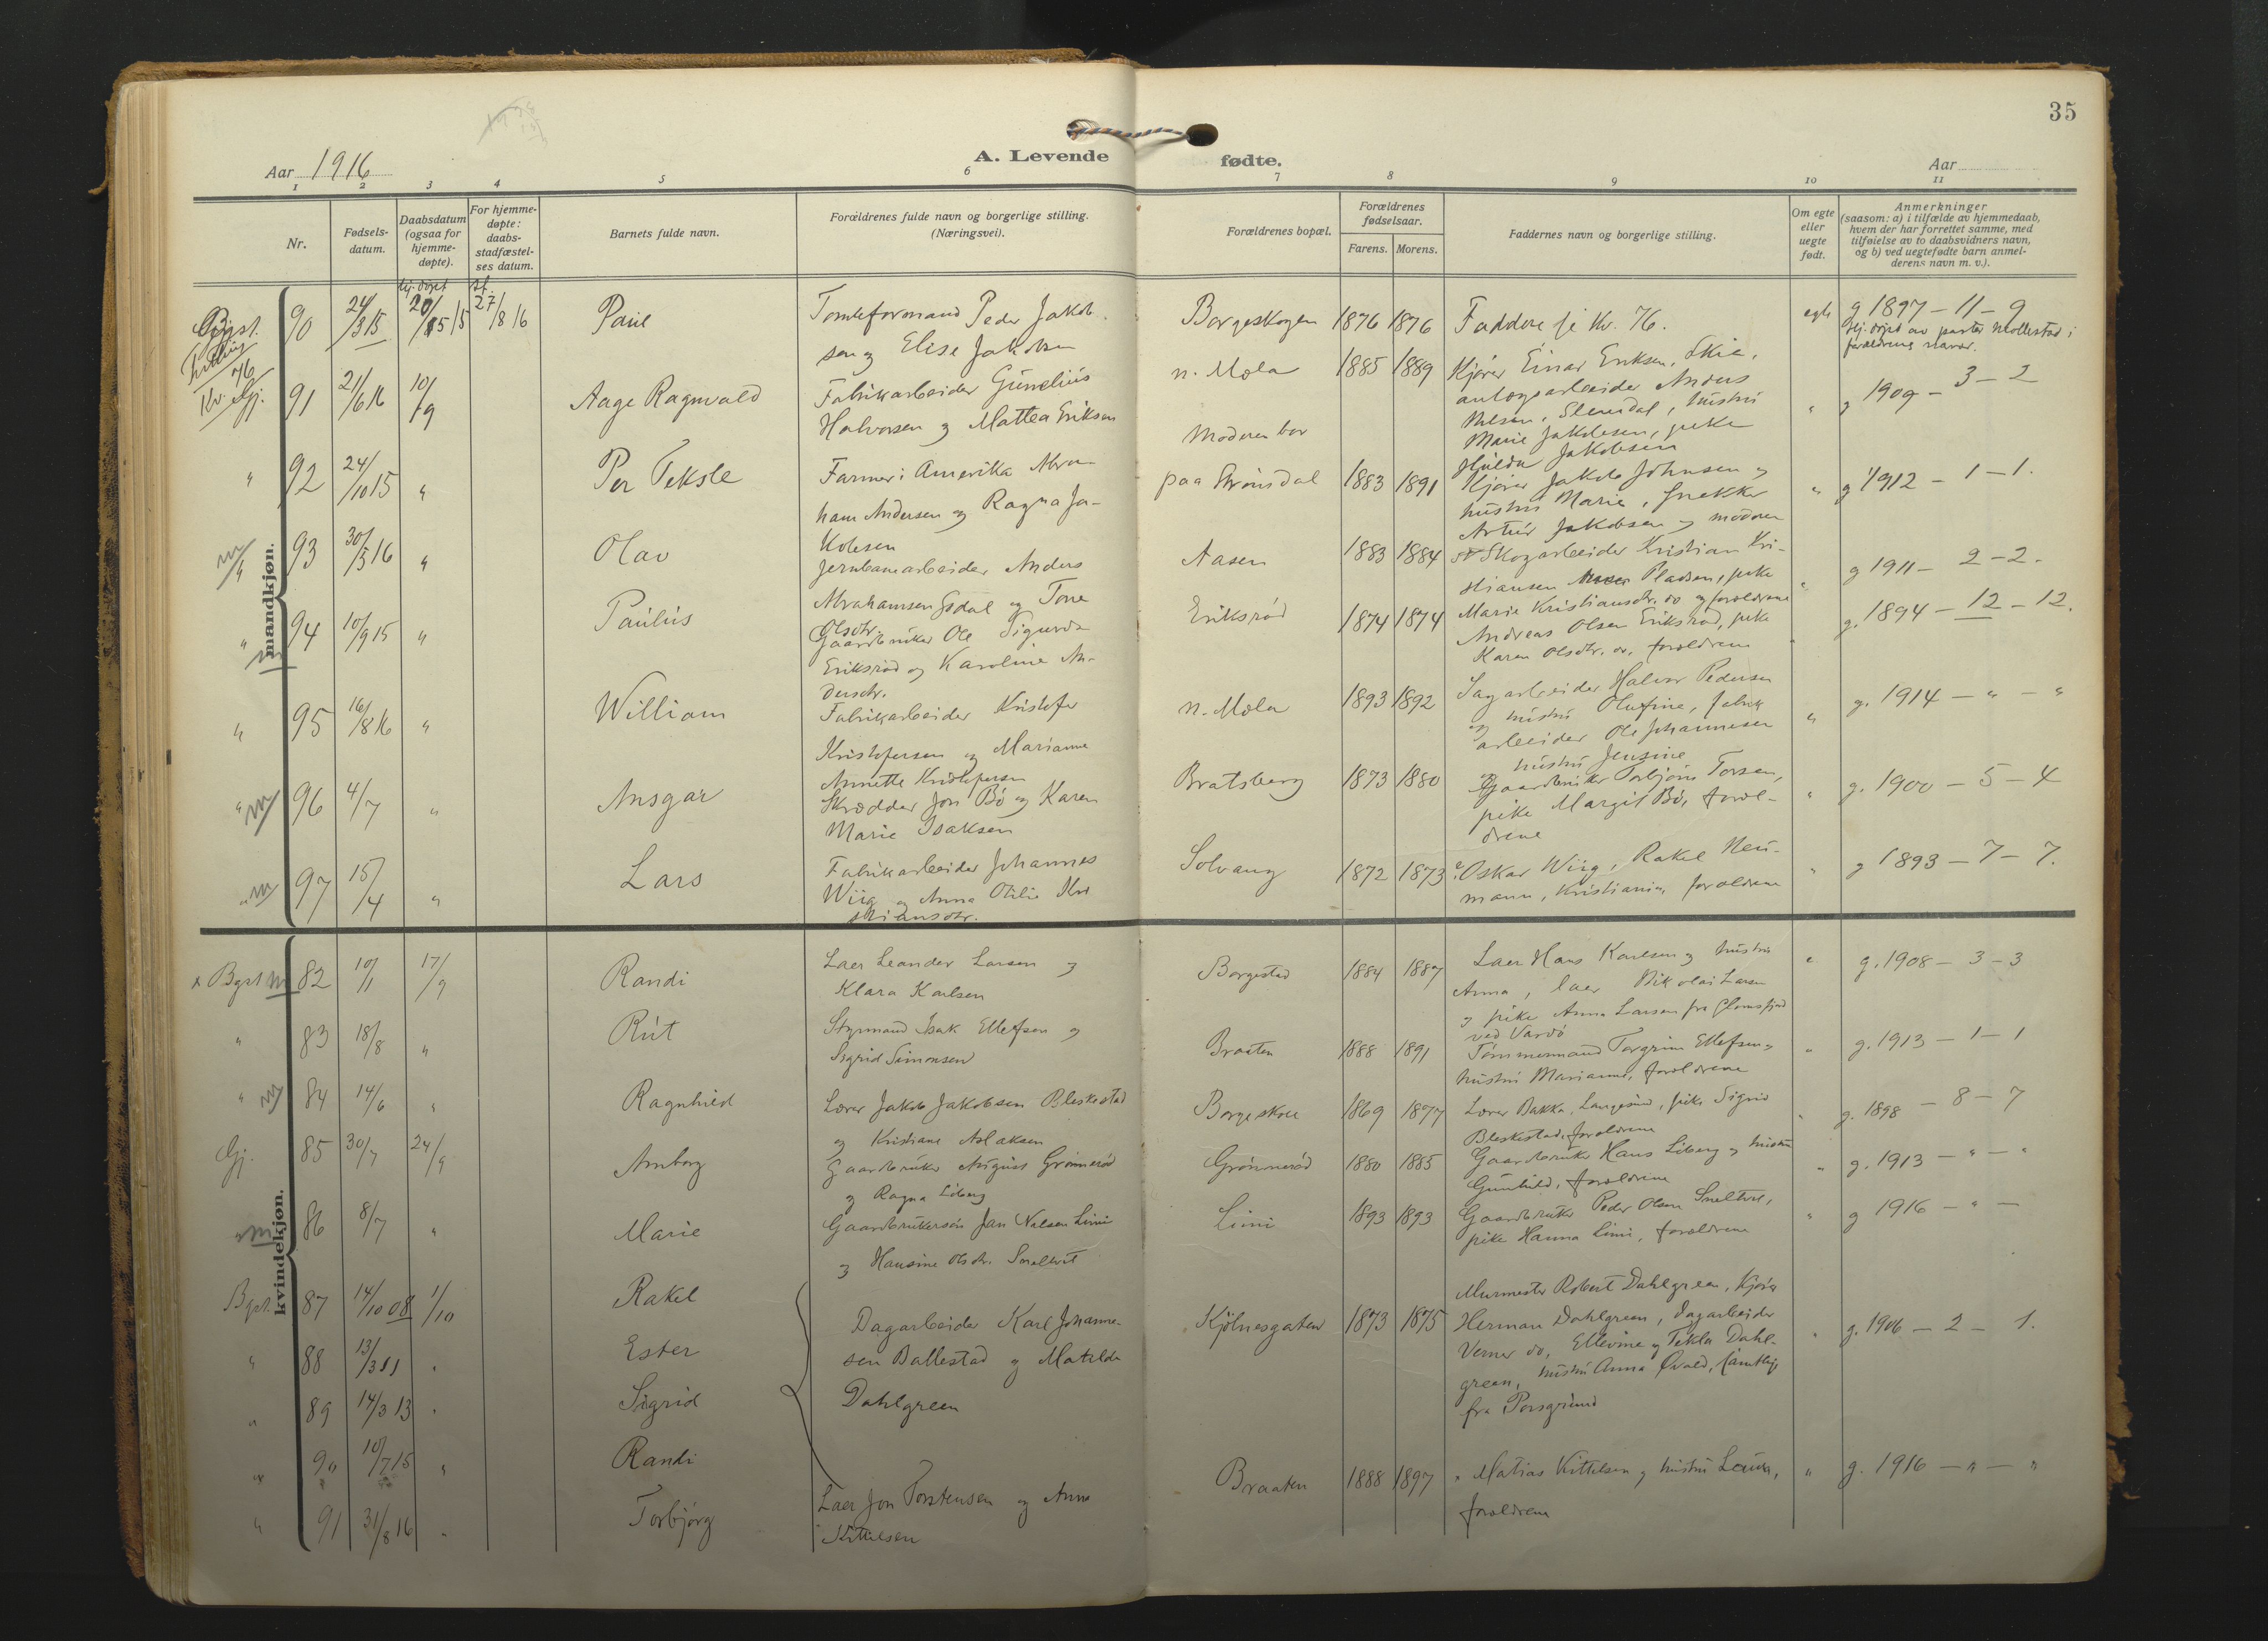 35
Aar 1916
A. Levende
fødte.
Aar
1 2 3 4 5 6 7 8 9 10 11
Nr.
Fødsels-
datum.
Daabsdatum
(ogsaa for
hjemme-
døpte).
For hjemme-
døpte:
daabs-
stadfæstel-
ses datum.
Barnets fulde navn.
Forældrenes fulde navn og borgerlige stilling.
(Næringsvei).
Forældrenes bopæl.
Forældrenes
fødselsaar.
Farens. Morens.
Faddernes navn og borgerlige stilling.
Om egte
eller
uegte
født.
Anmerkninger
(saasom: a) i tilfælde av hjemmedaab,
hvem der har forrettet samme, med
tilføielse av to daabsvidners navn,
og b) ved uegtefødte barn anmel-
derens navn m. v.).
mandkjøn.
hj. døpt st.
90 24/3 15 20/5 15 27/8 16 Paul
Tomteformand Peder Jakob-
sen og Elise Jakobsen
Borgeskogen 1876 1876
Faddere se Kv. 76.
egte g 1897 – 11 – 9
hj. døpt av pastor Mollestad i
forældrenes nærvær.
Kv. 76
Gj. 91 21/6 16 10/9 Aage Ragnvald
Fabrikarbeider Gunelius
Halvorsen og Mattea Eriksen
n. Mæla 1885 1889
Kjører Einar Eriksen, Skie,
anlægsarbeider Anders
Nilsen, Slemdal, hustru
Marie Jakobsen, pike
Hulda Jakobsen
" g 1909 – 3 – 2
" 92 24/10 15 " Per Teksle
Farmer i Amerika Abra-
ham Andersen og Ragna Ja-
kobsen
Moderen bor
paa Strømsdal 1883 1891
Kjører Jakob Johnsen og
hustru Marie, Snekker
Artur Jakobsen og moderen
" g 1912 – 1 – 1.
m " 93 30/5 16 " Olav
Jernbanearbeider Anders
Abrahamsen Isdal og Tone
Olsdtr.
Aasen 1883 1884
Skogarbeider Kristian Kri-
stiansen Pladsen, pike
Marie Kristiansdtr. do og forældrene
" g 1911 – 2 – 2.
" m 94 10/9 15 " Paulus
Gaardbruker Ole Sigurds.
Eriksrød og Karoline An-
dersdtr.
Eriksrød 1874 1874
Andreas Olsen Eriksrød, pike
Karen Olsdtr. do. forældrene
" g. 1894 – 12 – 12.
" 95 16/8 16 " William
Fabrikarbeider Kristofer
Kristofersen og Marianne
Annette Kristofersen
n. Mæla 1893 1892
Sagarbeider Halvor Pedersen
og hustru Olufine, fabrik
arbeider Ole Johannesen
og hustru Jensine
" g. 1914 – " – "
" m 96 4/7 " Ansgar
Skrædder Jon Bö og Karen
Marie Isaksen
Bratsberg 1873 1880
Gaardbruker Torbjörn Torsen,
pike Margit Bö, foræl-
drene
" g. 1900 – 5 – 4
" m 97 15/4 " Lars
Fabrikarbeider Johannes
Wiig og Anna Otilie Kri
stiansdtr.
Solvang 1872 1873
Oskar Wiig, Rakel Neu-
mann, Kristiania, forældrene
" g 1893 – 7 – 7.
kvindekjøn.
x Bgst m 82 10/1 17/9 Randi
Laer Leander Larsen og
Klara Karlsen
Borgestad 1884 1887
Laer Hans Karlsen og hustru
Anna, laer Nikolai Larsen
og pike Anna Larsen fra Glomsfjord
ved Vardö
" g. 1908 – 3 – 3
" 83 18/8 " Rut
Styrmand Isak Ellefsen og
Sigrid Simonsen
Braaten 1888 1891
Tömmermand Torgrim Ellefsen og
hustru Marianne, forældrene
" g. 1913 – 1 – 1
" m 84 14/6 " Ragnhild
Lærer Jakob Jakobsen Bleskestad
og Kristiane Aslaksen
Borgeskole 1869 1877
Lærer Bakka, Langesund, pike Sigrid
Bleskestad, forældrene
" g. 1898 – 8 – 7
Gj. 85 30/7 24/9 Arnborg
Gaardbruker August Grönnerød
og Ragna Liberg
Grönnerød 1880 1885
Gaardbruker Hans Liberg og hustru
Gunhild, forældrene
" g. 1913 – " – "
" m 86 8/7 " Marie
Gaardbrukersön Jan Nilsen Limi
og Hansine Olsdtr. Sneltvet
Limi 1893 1893
Gaardbruker Peder Olsen Sneltvet,
pike Hanna Limi, forældrene
" g 1916 – " –
Bgst. 87 14/10 08 1/10 Rakel
" 88 13/3 11 " Ester
" 89 14/3 13 " Sigrid
" 90 10/7 15 " Randi
Dagarbeider Karl Johanne-
sen Ballestad og Matilde
Dahlgreen
Kjölnesgaten 1873 1875
Murmester Robert Dahlgreen, Kjører
Herman Dahlgreen, dagarbeider
Verner do, Ellevine og Tekla Dahl-
green, hustru Anna Øvald, samtlige
fra Porsgrund
" g. 1906 – 2 – 1.
" 91 31/8 16 " Torbjörg
Laer Jon Torstensen og Anna
Kittilsen
Braaten 1888 1897
" Matias Kittilsen og hustru Laura,
forældrene
" g. 1916 – " – "